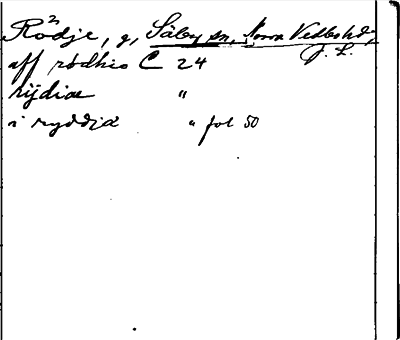 Rödje, g, Säby sn, Norra Vedbo hd,
J. L.
aff rödhio C 24
rijdiæ "
i ryddiæ " fol 50